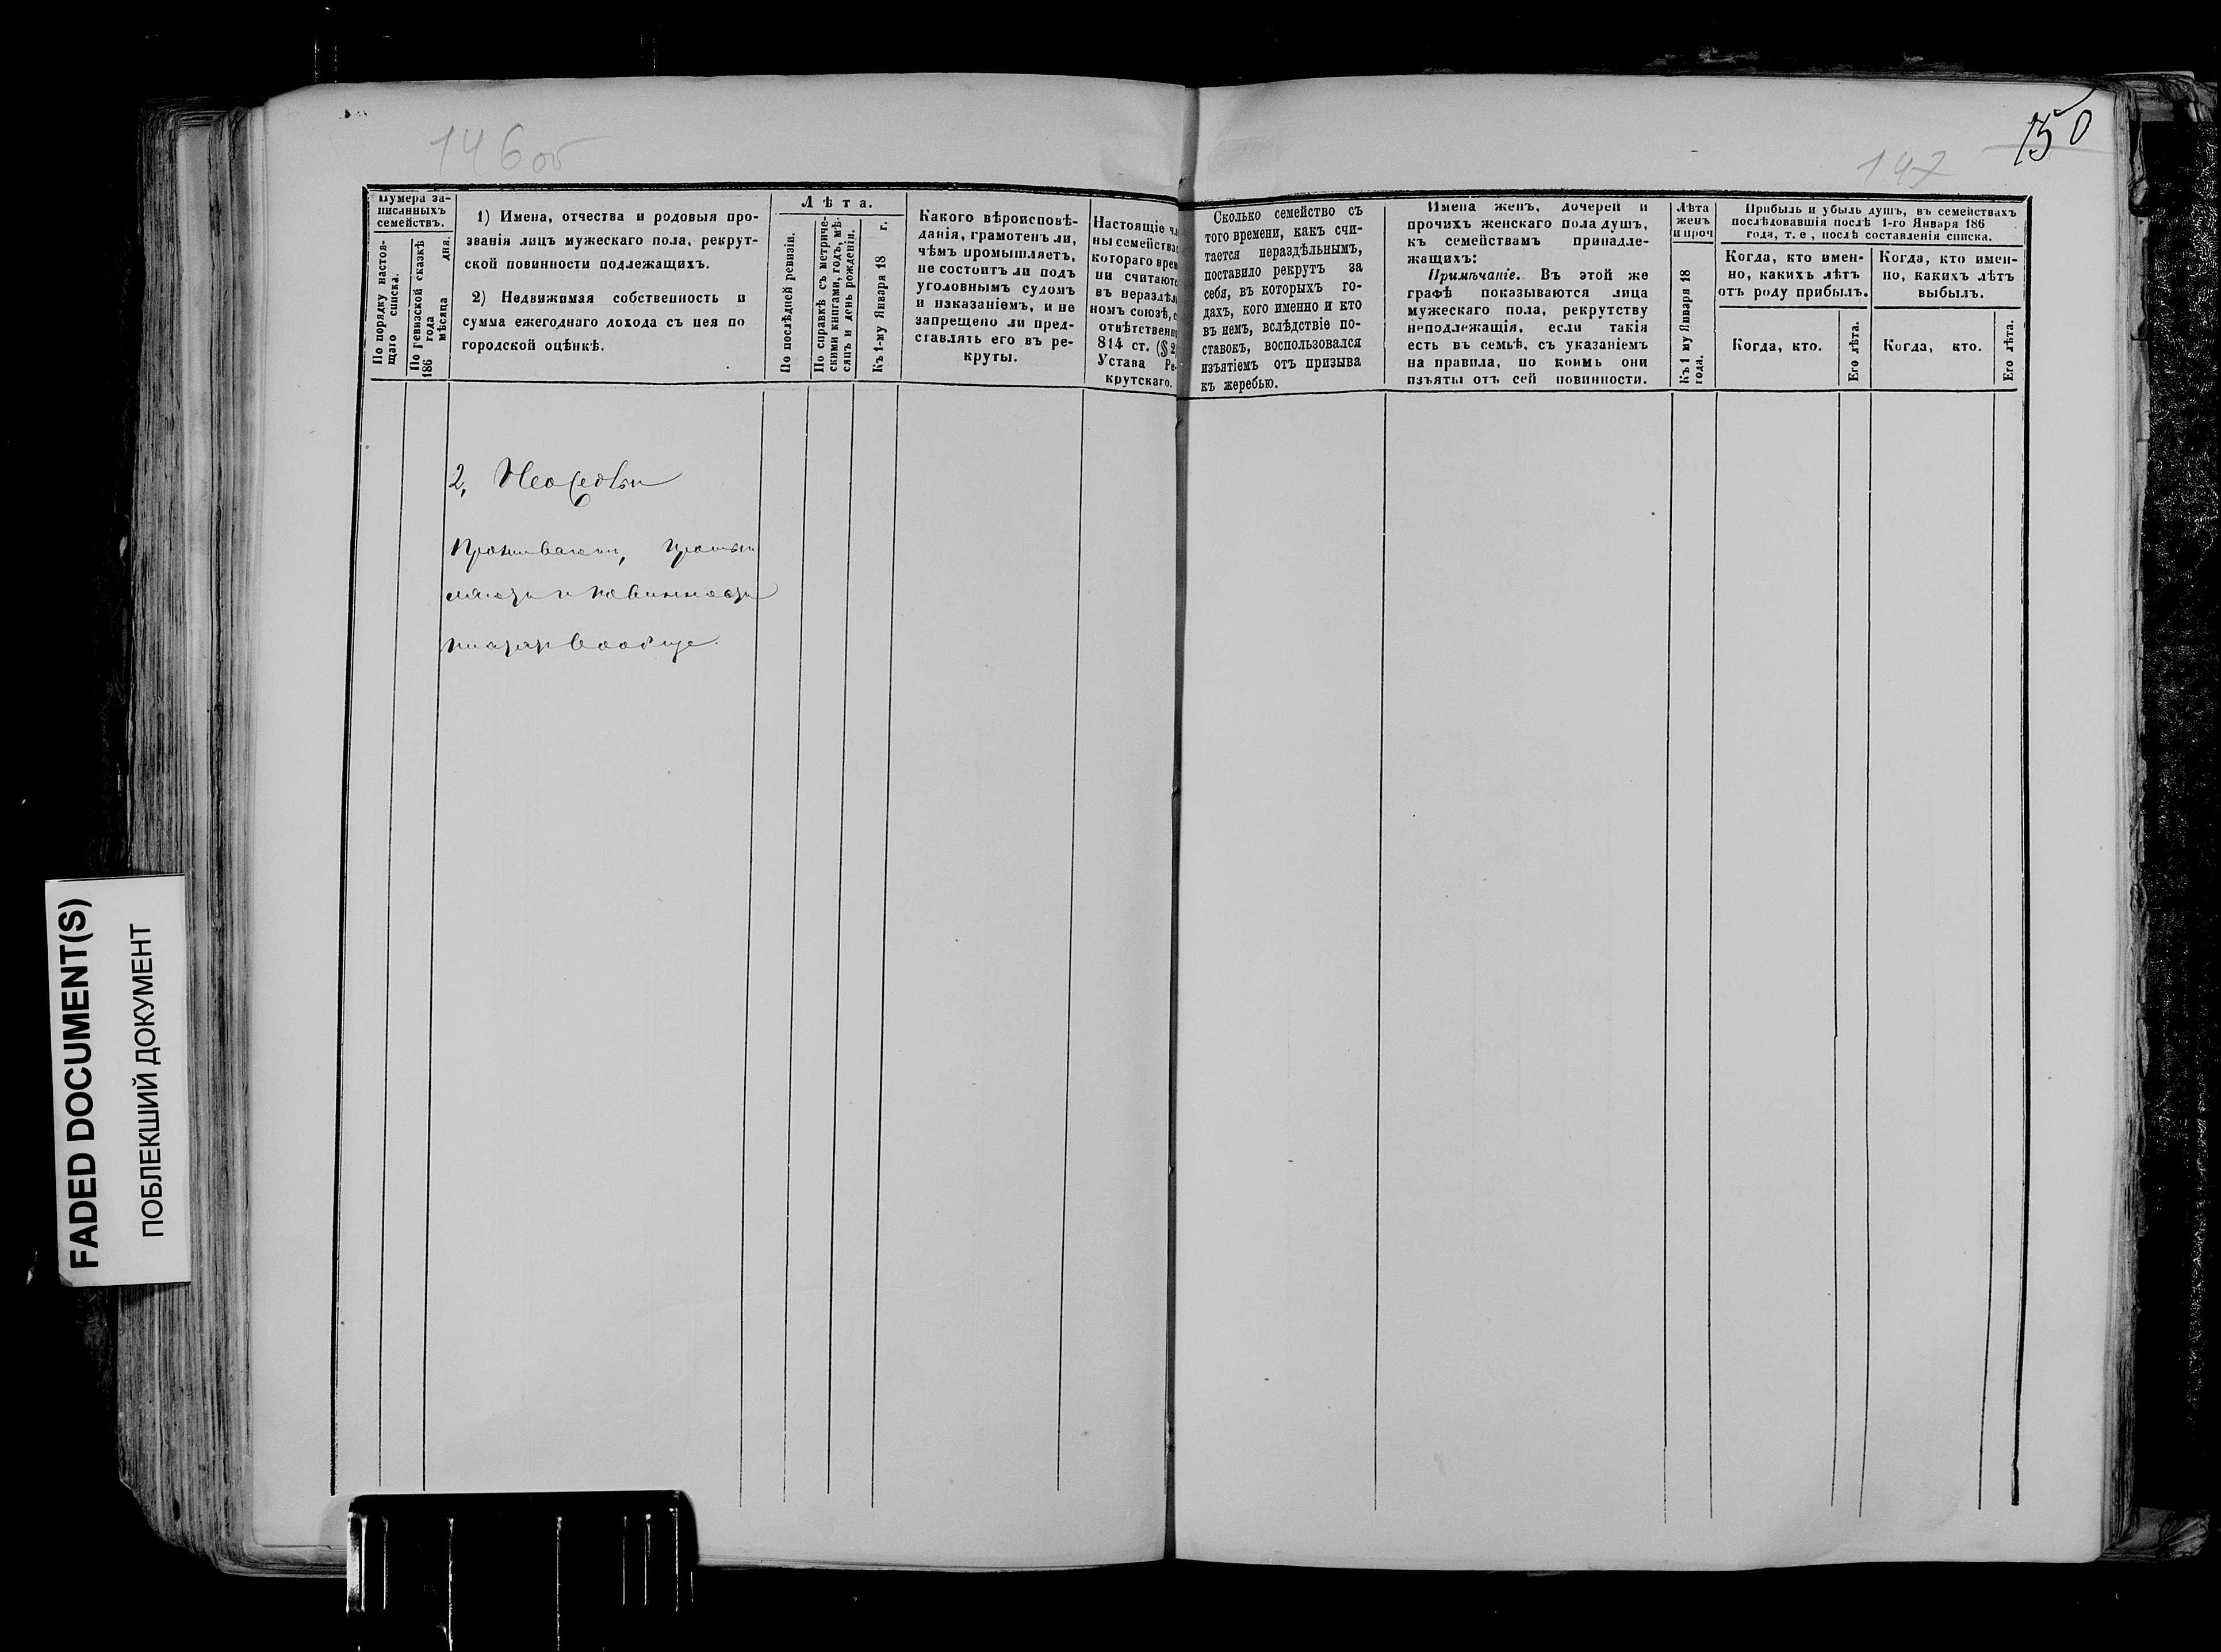 146об
150
147
Нумера за-
писанныхъ
семействъ.
По порядку настоя-
щаго списка.
По ревизской сказкѣ
186 года
мѣсяца дня.
1) Имена, отчества и родовыя про-
званія лицъ мужескаго пола, рекрут-
ской повинности подлежащихъ.
2) Недвижимая собственность и
сумма ежегоднаго дохода съ нея по
городской оцѣнкѣ.
Лѣта.
По послѣдней ревизіи.
По справкѣ съ метриче-
скими книгами, годъ, мѣ-
сяцъ и день рожденія.
Къ 1-му Января 18 г.
Какого вѣроисповѣ-
данія, грамотенъ ли,
чѣмъ промышляетъ,
не состоитъ ли подъ
уголовнымъ судомъ
и наказаніемъ, и не
запрещено ли пред-
ставлять его въ ре-
круты.
Настоящіе чл
ны семейства
котораго врем
ни считаютс
въ нераздѣл
номъ союзѣ, с
отвѣтственн
814 ст. (§ 2
Устава Ре-
крутскаго.
Сколько семейство съ
того времени, какъ счи-
тается нераздѣльнымъ,
поставило рекрутъ за
себя, въ которыхъ го-
дахъ, кого именно и кто
въ немъ, вслѣдствіе по-
ставокъ, воспользовался
изъятіемъ отъ призыва
къ жеребью.
Имена женъ, дочерей и
прочихъ женскаго пола душъ,
къ семействамъ принадле-
жащихъ:
Примѣчаніе. Въ этой же
графѣ показываются лица
мужескаго пола, рекрутству
неподлежащія, если такія
есть въ семьѣ, съ указаніемъ
на правила, по коимъ они
изъяты отъ сей повинности.
Лѣта
женъ
и проч
Къ 1 му Января 18
года.
Прибыль и убыль душъ, въ семействахъ
послѣдовавшія послѣ 1-го Января 186
года, т. е, послѣ составленія списка.
Когда, кто имен-
но, какихъ лѣтъ
отъ роду прибылъ.
Когда, кто.
Его лѣта.
Когда, кто имен-
но, какихъ лѣтъ
выбылъ.
Когда, кто.
Его лѣта.
2,
Проживаютъ,
и повинности
вообще.
FADED DOCUMENT(S)
ПОБЛЕКШИЙ ДОКУМЕНТ